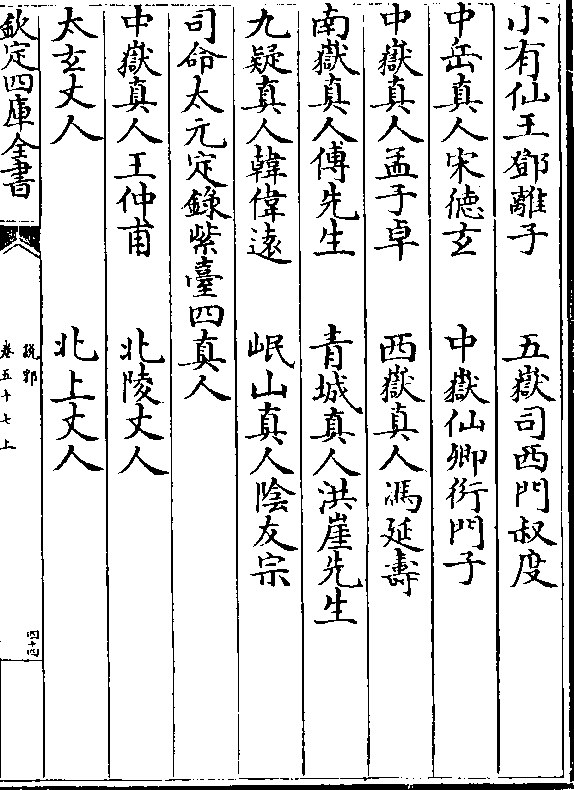 小有仙王鄧離子　五嶽司西門叔度
中岳真人宋德玄　中嶽仙卿衍門子
中嶽真人孟子卓　西嶽真人馮延壽
南嶽真人傅先生　青城真人洪崖先生
九疑真人韓偉遠　岷山真人陰友宗
司命太元定錄紫臺四真人
中嶽真人王仲甫　北陵丈人
太玄丈人　北上丈人
欽定四庫全書　說郛卷五十七上　四十四